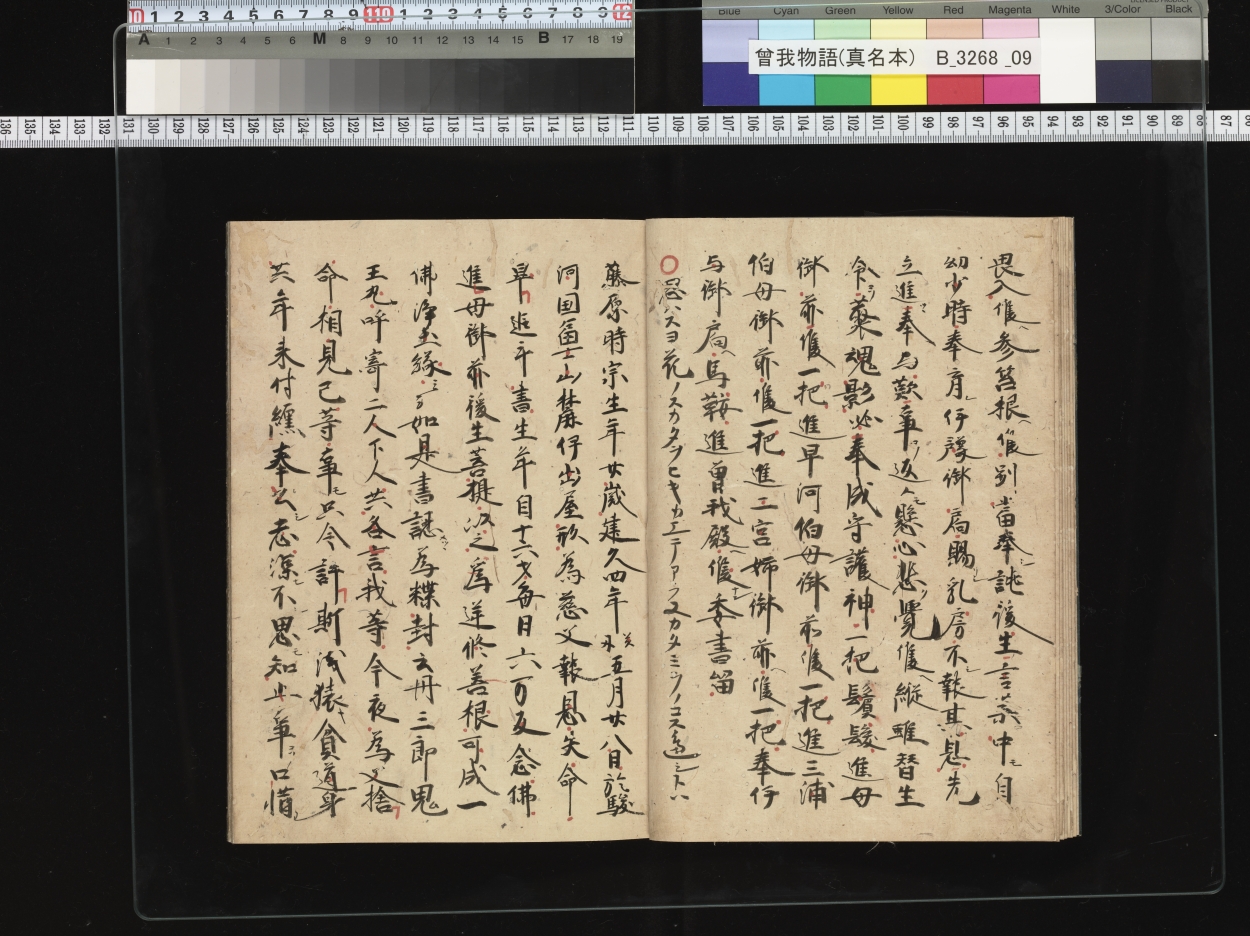 Blue Cyan Green Yellow Red Magenta White 3/Color Black
曾我物語(真名本) B_3268_09
畏入候参筥根候別當奉誂後生言葉中自
幼少時奉育伊豫御局賜乳房不報其恩先
立進奉与歎事返々懸心悲覺候縦雖替生
令蒙魂影必奉成守護神一把鬢髪進母
御前候一把進早河伯母御前候一把進三浦
伯母御前候一把進二宮姉御前候一把奉伊
与御局馬鞍進曽我殿候委書留
ハスヨ花ノスカタヲヒキカエテアラヌカタミヲノコス
藤原時宗生年廿歳建久四年癸丑五月廿八日於駿
河国冨士山麓伊出屋形為慈父報恩失命
早近年書生年自十六才毎日六万反念佛
進母御前後生菩提次之為逆修善根可成一
佛浄土縁云々如是書誌為糉封云丹三郎鬼
王丸呼寄二人下人共各言我等今夜為父捨
命相見己等事只今許斯浅猿貧道身
共年来付纏奉公志深不思知事口惜